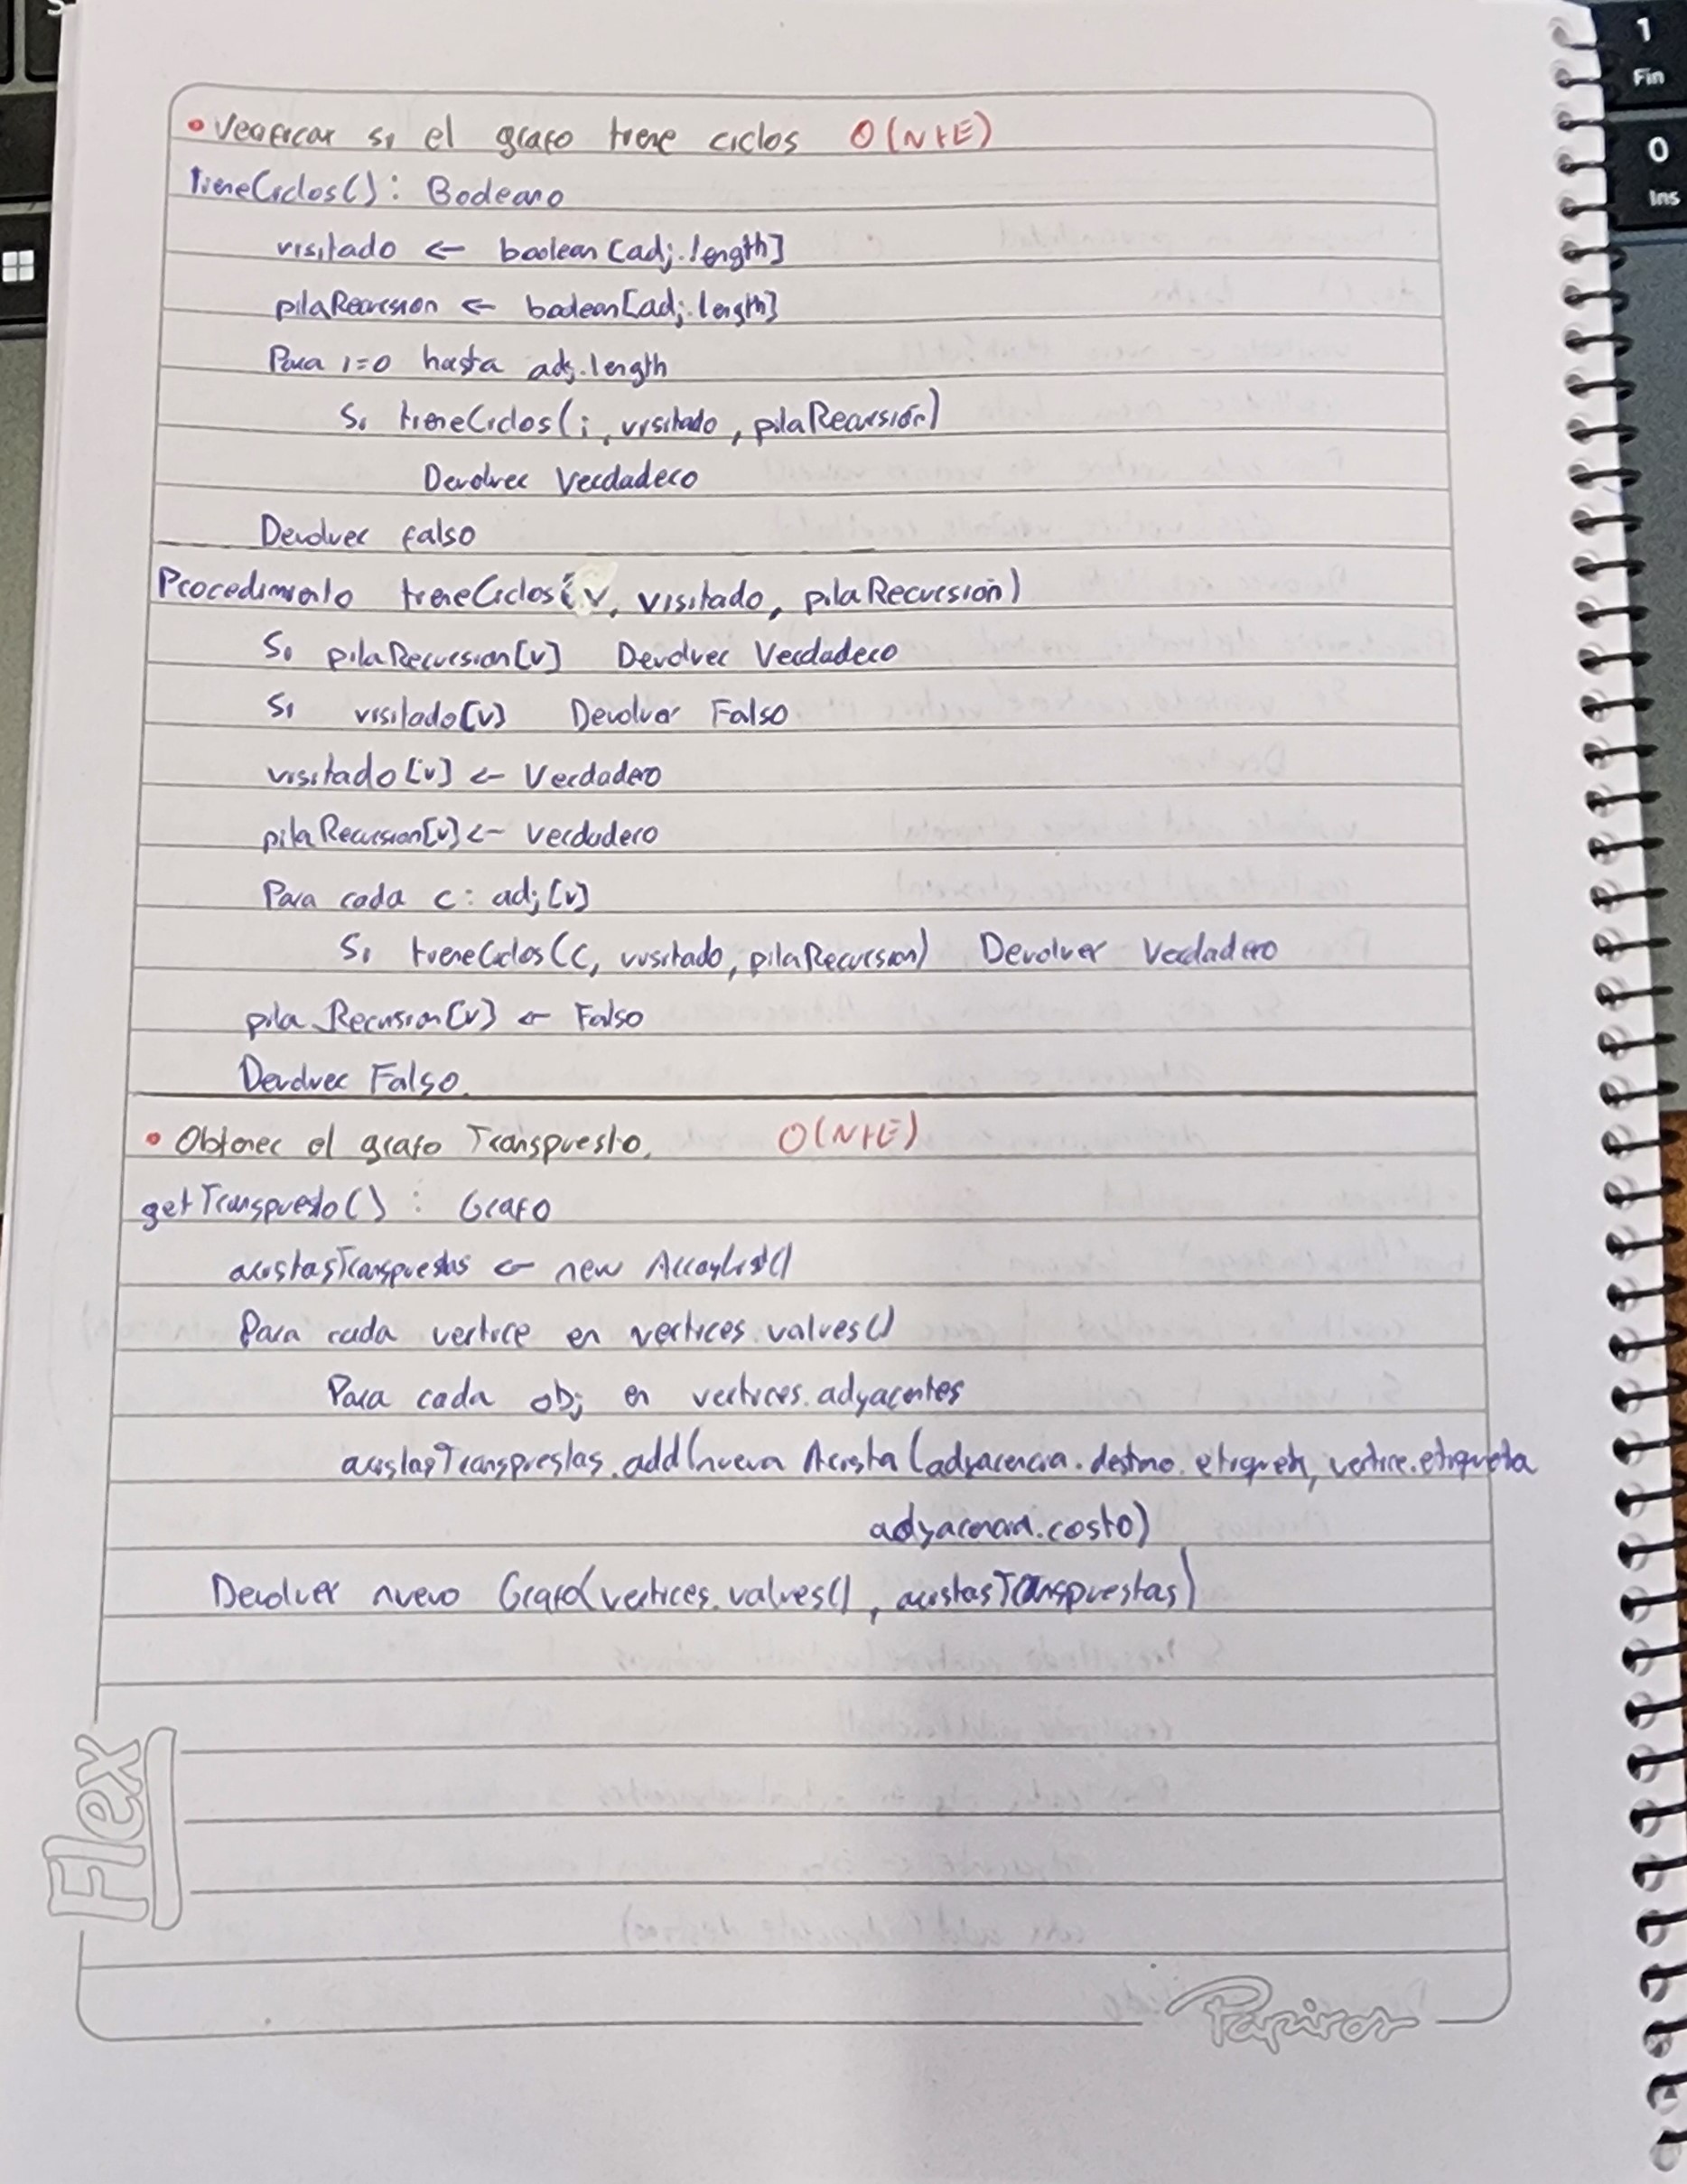 • Verificar si el grafo tiene ciclos O(N+E)
tieneCiclos(): Booleano
visitado ← boolean[adj.length]
pilaRecursion ← boolean[adj.length]
Para i=0 hasta adj.length
Si tieneCiclos(i, visitado, pilaRecursión)
Devolver Verdadero
Devolver falso
Procedimiento tieneCiclos(v, visitado, pilaRecursión)
Si pilaRecursion[v] Devolver Verdadero
Si visitado[v] Devolver Falso
visitado[v] ← Verdadero
pilaRecursion[v] ← Verdadero
Para cada c: adj[v]
Si tieneCiclos(c, visitado, pilaRecursion) Devolver Verdadero
pila Recursion[v] ← Falso
Devolver Falso.
• Obtener el grafo Transpuesto. O(N+E)
getTranspuesto() : Grafo
aristasTranspuestas ← new ArrayList()
Para cada vertice en vertices.values()
Para cada obj en vertices.adyacentes
aristasTranspuestas.add(nueva Arista(adyacencia.destino.etiqueta, vertice.etiqueta
adyacencia.costo)
Devolver nuevo Grafo(vertices.values(), aristasTranspuestas)
Flex
Papiros
1
Fin
0
Ins